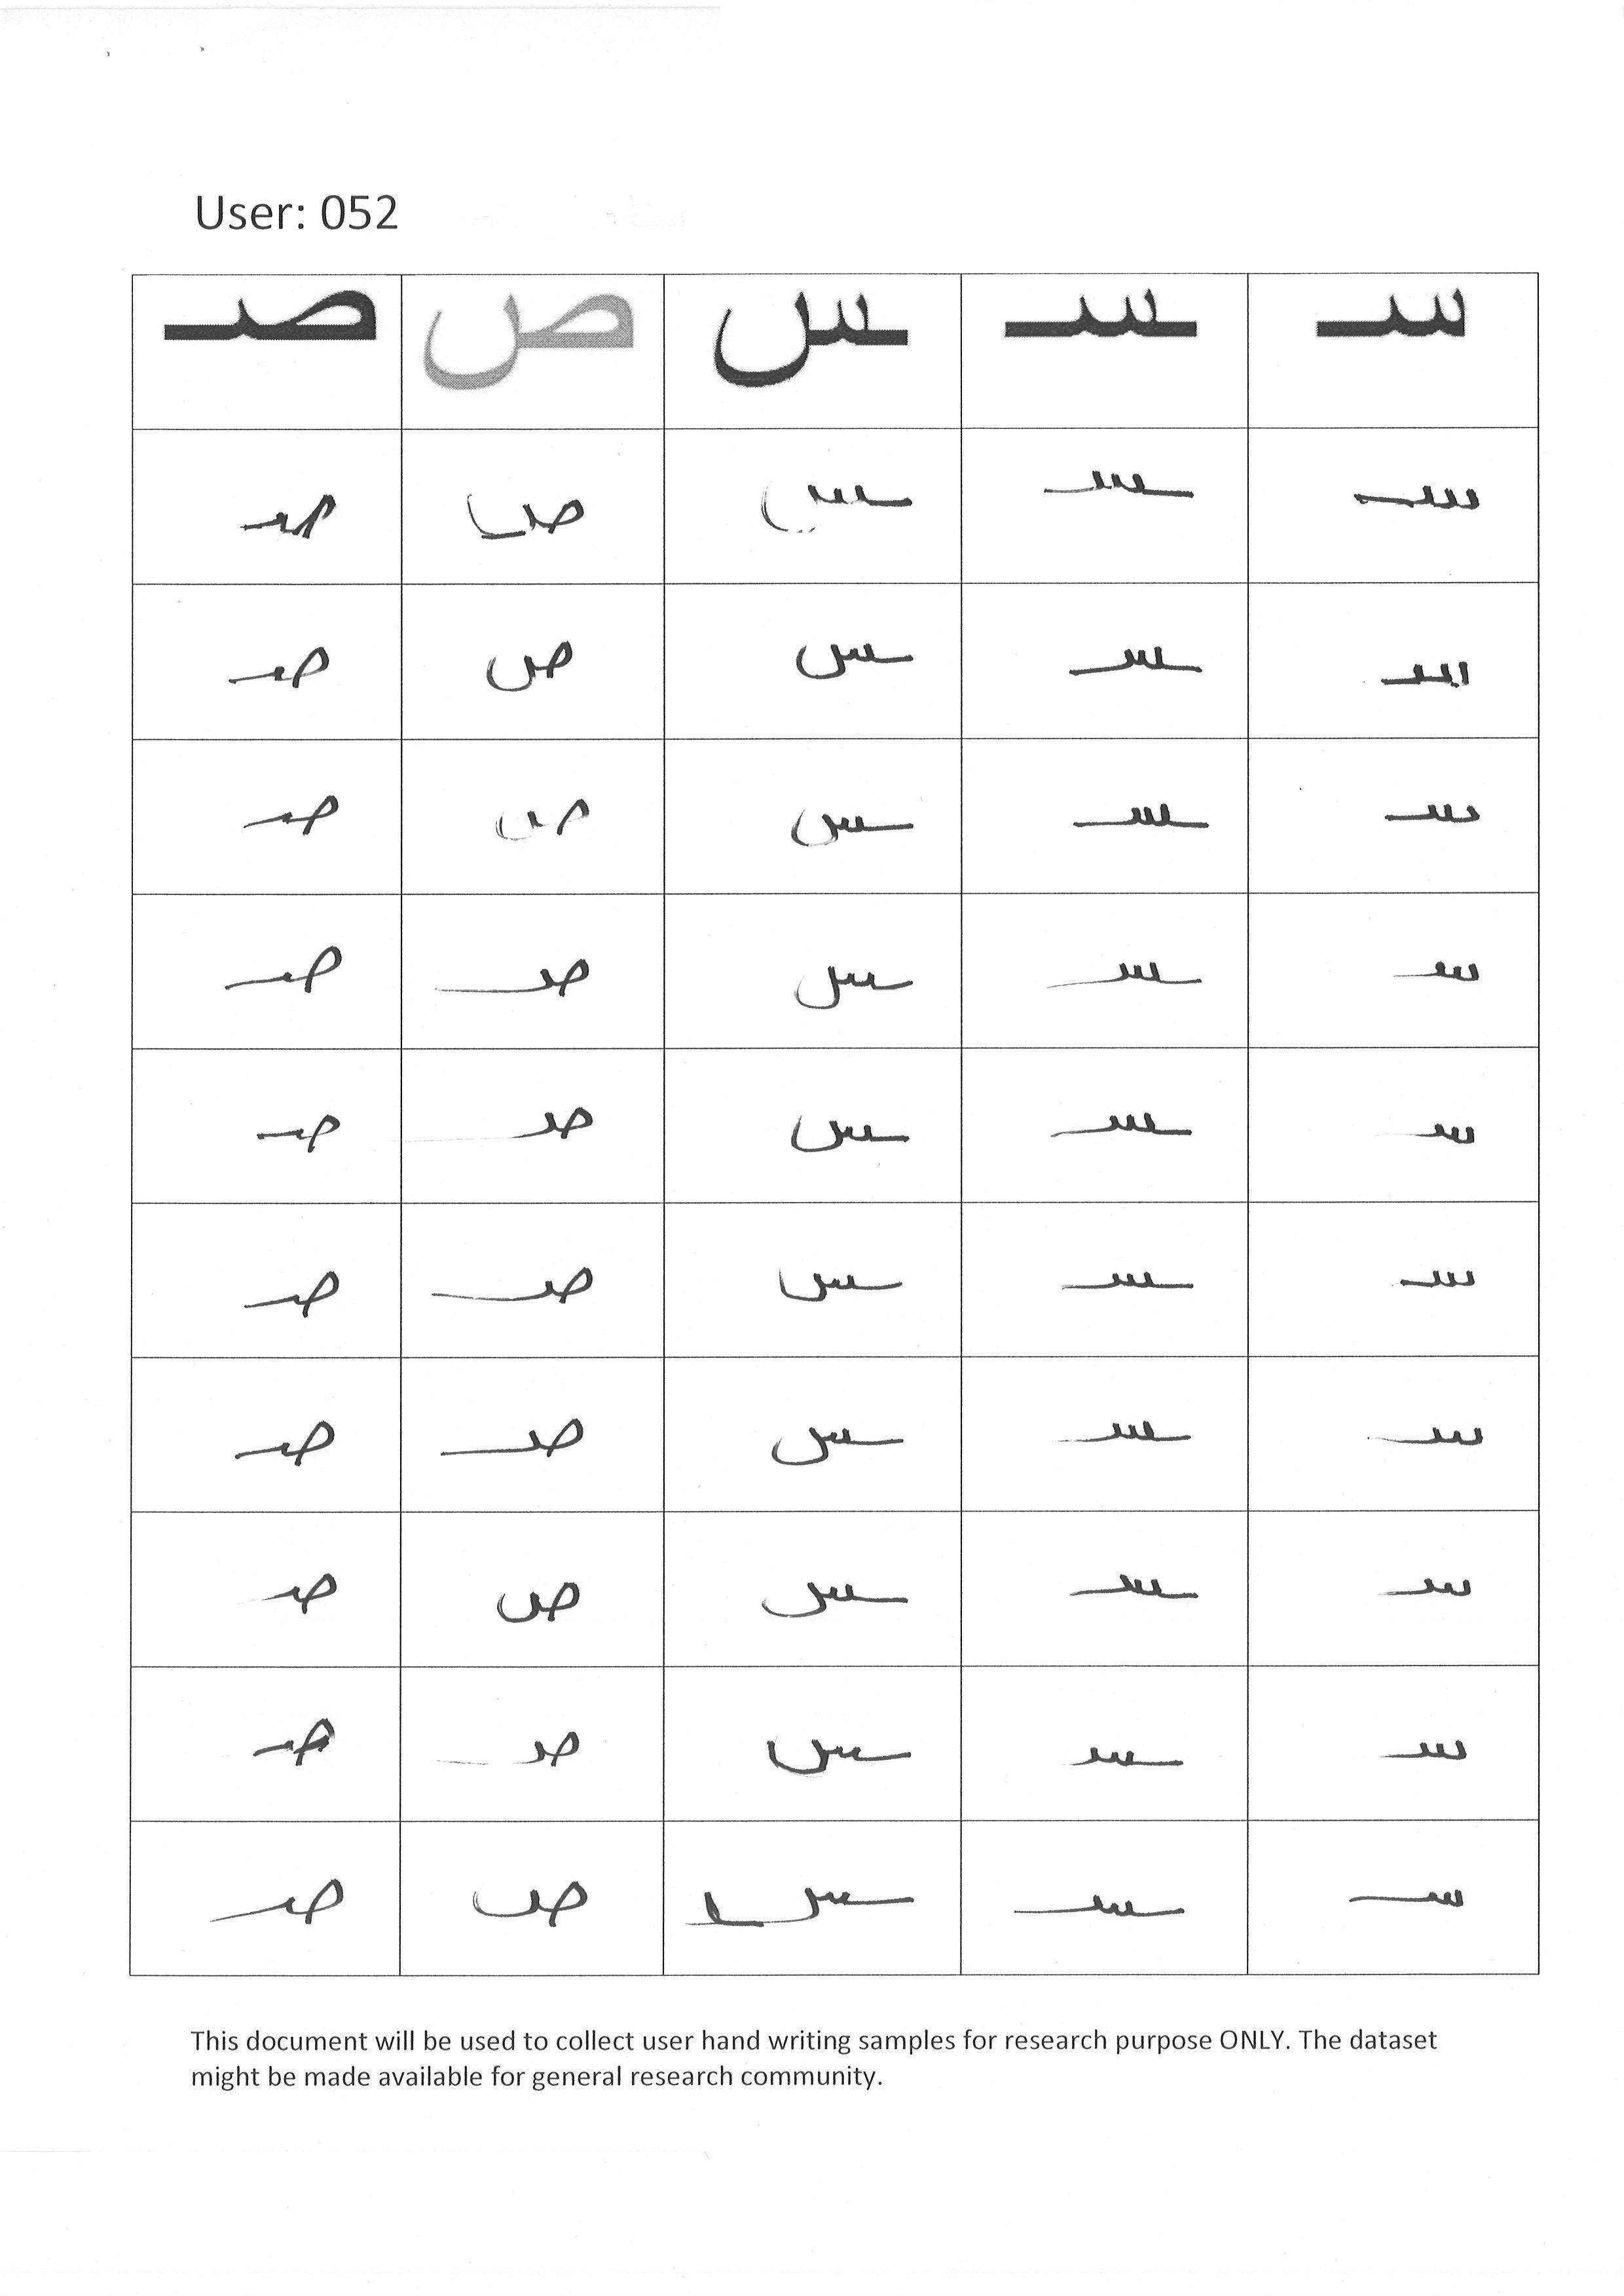 User: 052
سـ ـسـ ـس ص صـ
سـ ـسـ ـس ص صـ
سـ ـسـ ـس ص صـ
سـ ـسـ ـس ص صـ
سـ ـسـ ـس صـ صـ
سـ ـسـ ـس صـ صـ
سـ ـسـ ـس صـ صـ
سـ ـسـ ـس صـ صـ
سـ ـسـ ـس ص صـ
سـ ـسـ ـس صـ صـ
سـ ـسـ ـس ص صـ
This document will be used to collect user hand writing samples for research purpose ONLY. The dataset
might be made available for general research community.